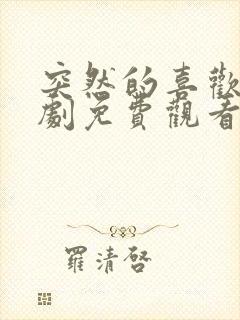 突然的喜歡
劇免費觀看
羅清啓